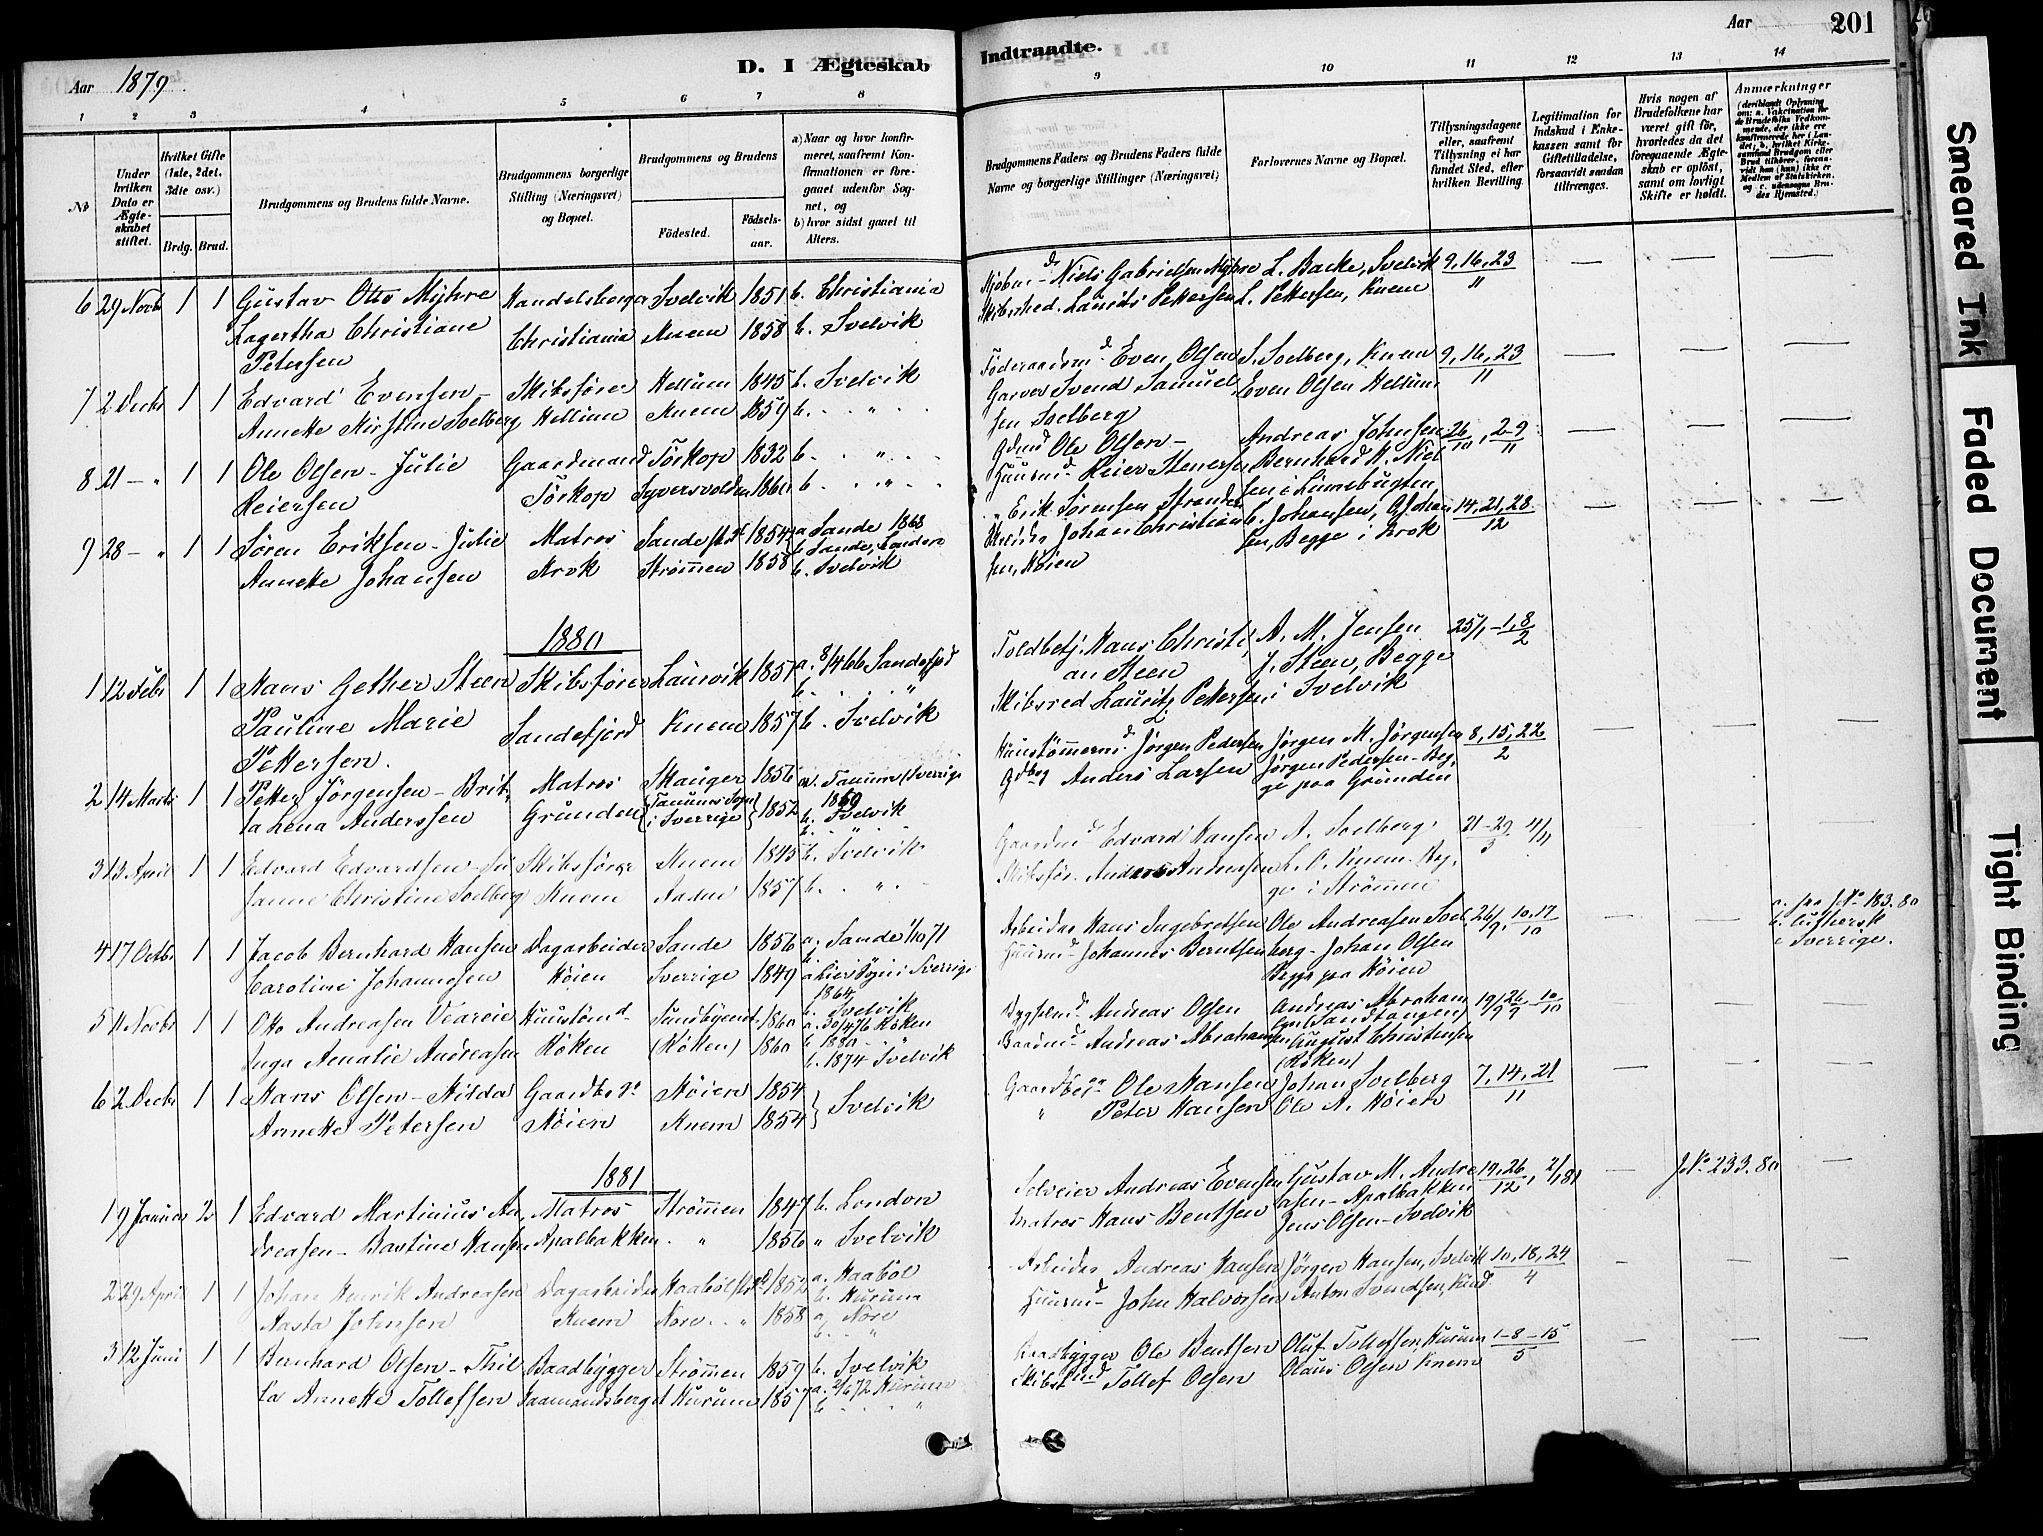 Aar 1879
D. I Ægteskab
Indtraadte.
Aar
201
1
2
3
4
5
6
7
8
9
10
11
12
13
14
№
Under hvilken Dato er Ægteskabet stiftet.
Hvilket Gifte (1ste, 2det, 3die osv.)
Brdg.
Brud.
Brudgommens og Brudens fulde Navne.
Brudgommens borgerlige Stilling (Næringsvei) og Bopæl.
Brudgommens og Brudens
Fødested.
Fødsels-aar.
a) Naar og hvor konfirmeret, saafremt Konfirmationen er foregaaet udenfor Sognet, og
b) hvor sidst gaaet til Alters.
Brudgommens Faders og Brudens Faders fulde Navne og borgerlige Stillinger (Næringsvei)
Forlovernes Navne og Bopæl.
Tillysningsdagene eller, saafremt Tillysning ei har fundet Sted, efter hvilken Bevilling.
Legitimation for Indskud i Enkekassen samt for Giftetilladelse, forsaavidt saadan tiltrænges.
Hvis nogen af Brudefolkene har været gift før, hvorledes da det foregaaende Ægteskab er opløst, samt om lovligt Skifte er holdt.
Anmærkninger
6 29 Novb 1 1 Gustav Otto Myhre Handelsborger Svelvik 1851 b. Christiania
Lagertha Christiane Christiania Knem 1858 b. Svelvik
Petersen
Niels Gabrielsen Myhre L. Backe, Svelvik 9, 16, 23
Skibsred. Laurits Pettersen L. Pettersen, Knem 11
7 2 Decbr 1 1 Edvard Evensen - Skibsfører Hellum 1845 b. Svelvik
Annette Kirstine Soelberg Hellum Knem 1859 b. . . " . .
Føderaadsmd Even Olsen S. Soelberg, Knem 9, 16, 23
Garver Svend Samuel Even Olsen Hellum 11
sen Soelberg
8 21 - " 1 1 Ole Olsen - Julie Gaardmand Tørkop 1832 b. . . " . .
Reiersen Tørkop Syversvolden 1860 b. . . " . .
Gdmd Ole Olsen - Andreas Johnsen 26/10, 29/11
Huusmd Reier Stenersen Bernhard H. Niel
sen i Linnesbugten
9 28 - " 1 1 Søren Eriksen - Julie Matros Sande Pstd 1854 a. Sande 1868
Annette Johansen Krok Strømmen 1858 b. Svelvik
" Erik Sørensen Stranden
Johan Christian C. Johansen, O Johan 14, 21, 28
sen, Høien sen, Begge i Krok 12
1880
1 12 Febr 1 1 Hans Gether Steen Skibsfører Laurvik 1857 a. 8/4 66 Sandefjord
Pauline Marie Sandefjord Knem 1857 b. Svelvik
Pettersen.
Toldbetj. Hans Christi A. M. Jensen 25/1 - 1, 8/2
an Steen J. Steen, Begge
Skibsred Lauritz Pettersen i Svelvik
2 14 Marts 1 1 Petter Jørgensen - Brit Matros Skauger 1856 a. Tanum (Sverrige
ta Lena Anderssen Grunden Tanums Sogn i Sverrige 1852 1869 b. Svelvik
Huustømmermd. Jørgen Pedersen Jørgen M. Jørgensen 8, 15, 22
Anders Larsen Jørgen Pedersen - Beg 2
ge paa Grunden
3 13 April 1 1 Edvard Edvardsen - Su Skibsfører Knem 1845 b. Svelvik
sanne Christine Soelberg Knem 1857 b. . " .
Gaardmd Edvard Hansen A. Soelberg 21-29/3 4/4
Skibsfør. Anders Andersen L. P. Knem - Beg
ge i Strømmen
4 17 Octbr 1 1 Jacob Bernhard Hansen Dagarbeider Sande 1856 a. Sande 1/10 71
Caroline Johannesen Høien Sverrige 1849 Sogn i Sverrige
1864
b. Svelvik
Arbeider Hans Ingebretsen Ole Andreasen Soel 26/9, 10, 17/10
Huusmd Johannes Berntsen berg - Johan Olsen
Begge paa Høien
a. pra J No 183. 80
b. luthersk
i Sverrige.
5 11 Novbr 1 1 Otto Andreasen Huustømd 1860 a. 30/4 76 Røken
Inga Amalie Andreasen Røken (Røken) 1860 b. 1880
b. 1874 Svelvik
Bygselmd Andreas Olsen Andreas Abraham
sen (Sandtangen)
Gaardmd Andreas Abrahamsen August Christensen
(Røken)
6 2 Decbr 1 1 Hans Olsen - Hilda Gaardbr. Høien 1854
Annette Petersen Høien Knem 1854 } Svelvik
Ole Hansen Johan Soelberg 7, 14, 21
" Peter Hansen Ole A. Høien 11
1881
1 9 Januar 2 1 Edvard Martinius An Matros Strømmen 1847 b. London
dreasen - Bastine Hansen Apalbakken . " 1856 " Svelvik
Selveier Andreas Evensen Gustav M. Andre 19, 26/12, 2/1 81
asen - Apalbakken
Matros Hans Bentsen Jens Olsen - Svelvik
J No 233. 80
2 29 April 1 1 Johan Henrik Andreasen Dagarbeider Haabøl Pstd 1852 a. Haabøl
b. Hurum
Aasta Johnsen Knem Nore . . " 1858 a. Nore
b. . "
Arbeider Andreas Hansen Jørgen Hansen, Svelvik 10, 18, 24
Huusmd - John Halvorsen Anton Svendsen, Knem 4
3 12 Juni 1 1 Bernhard Olsen - Thil Baadbygger Strømmen 1859 b. Svelvik
da Annette Tollefsen Hurum 1857 a. 2/6 72 Hurum
Baadbygger Ole Bentsen Oluf Tollefsen, Hurum 1-8-15
Tollef Olsen Olaus Olsen Knem 5
Smeared Ink
Faded Document
Tight Binding